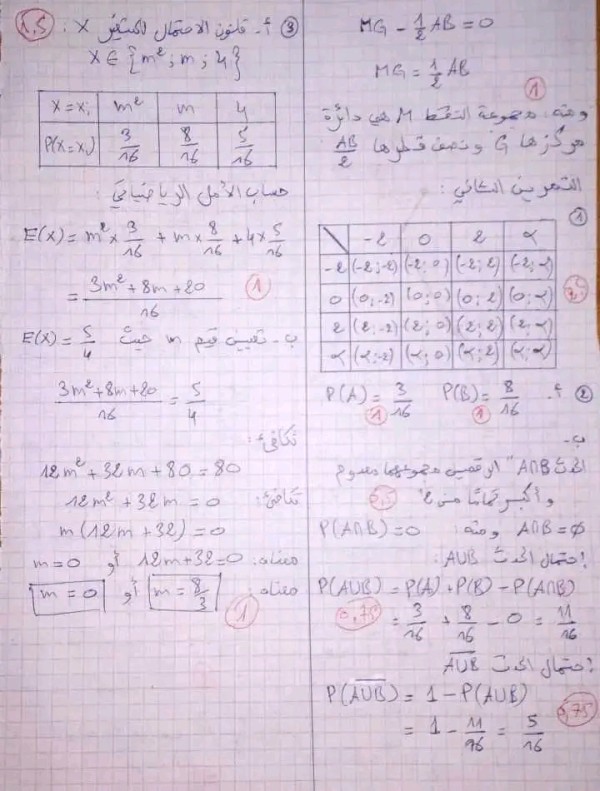 MG - 1/2 AB = 0
MG = 1/2 AB
1
ومنه: مجموعة النقط M هي دائرة
مركزها G ونصف قطرها AB/2
التمرين الثاني:
①
-2 0 2 α
-2 (-2;-2) (-2;0) (-2;2) (-2;α)
0 (0;-2) (0;0) (0;2) (0;α)
2 (2;-2) (2;0) (2;2) (2;α)
α (α;-2) (α;0) (α;2) (α;α)
② أ- P(B) = 8/16 P(A) = 3/16
1 1
ب-
الحدث A∩B "الرقمين مجموعهما معدوم
وأكبر تماما من 2" 0,5
A∩B = ∅ ومنه: P(A∩B) = 0
احتمال الحدث A∪B:
P(A∪B) = P(A) + P(B) - P(A∩B)
0,75 = 3/16 + 8/16 - 0 = 11/16
احتمال الحدث A̅∪̅B̅
P(A̅∪̅B̅) = 1 - P(A∪B)
= 1 - 11/16 = 5/16
0,75
③ أ- قانون الاحتمال للمتغير X:
1,5
X ∈ {m²; m; 4}
X = xᵢ m² m 4
P(X=xᵢ) 3/16 8/16 5/16
حساب الأمل الرياضياتي:
E(X) = m² × 3/16 + m × 8/16 + 4 × 5/16
= 3m² + 8m + 20 / 16
1
ب- تعيين قيم m حيث E(X) = 5/4
3m² + 8m + 20 / 16 = 5/4
تكافئ:
12m² + 32m + 80 = 80
تكافئ: 12m² + 32m = 0
m(12m + 32) = 0
معناه: 12m + 32 = 0 أو m = 0
معناه: m = 8/3 أو m = 0
1